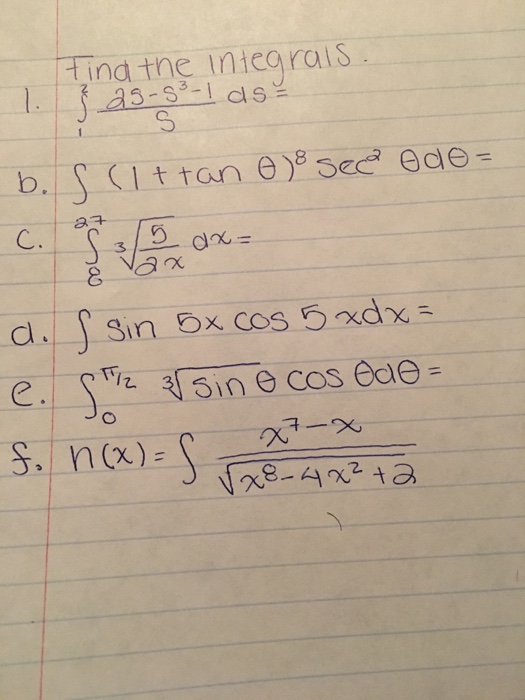 Find the integrals.
1. ∫₁² (2s-s³-1)/s ds =
b. ∫ (1 + tan θ)⁸ sec² θdθ =
c. ∫₈²⁷ ∛(5/2x) dx =
d. ∫ sin 5x cos 5xdx =
e. ∫₀^π/2 ∛sin θ cos θdθ =
f. n(x) = ∫ (x⁷-x)/√(x⁸-4x²+2)